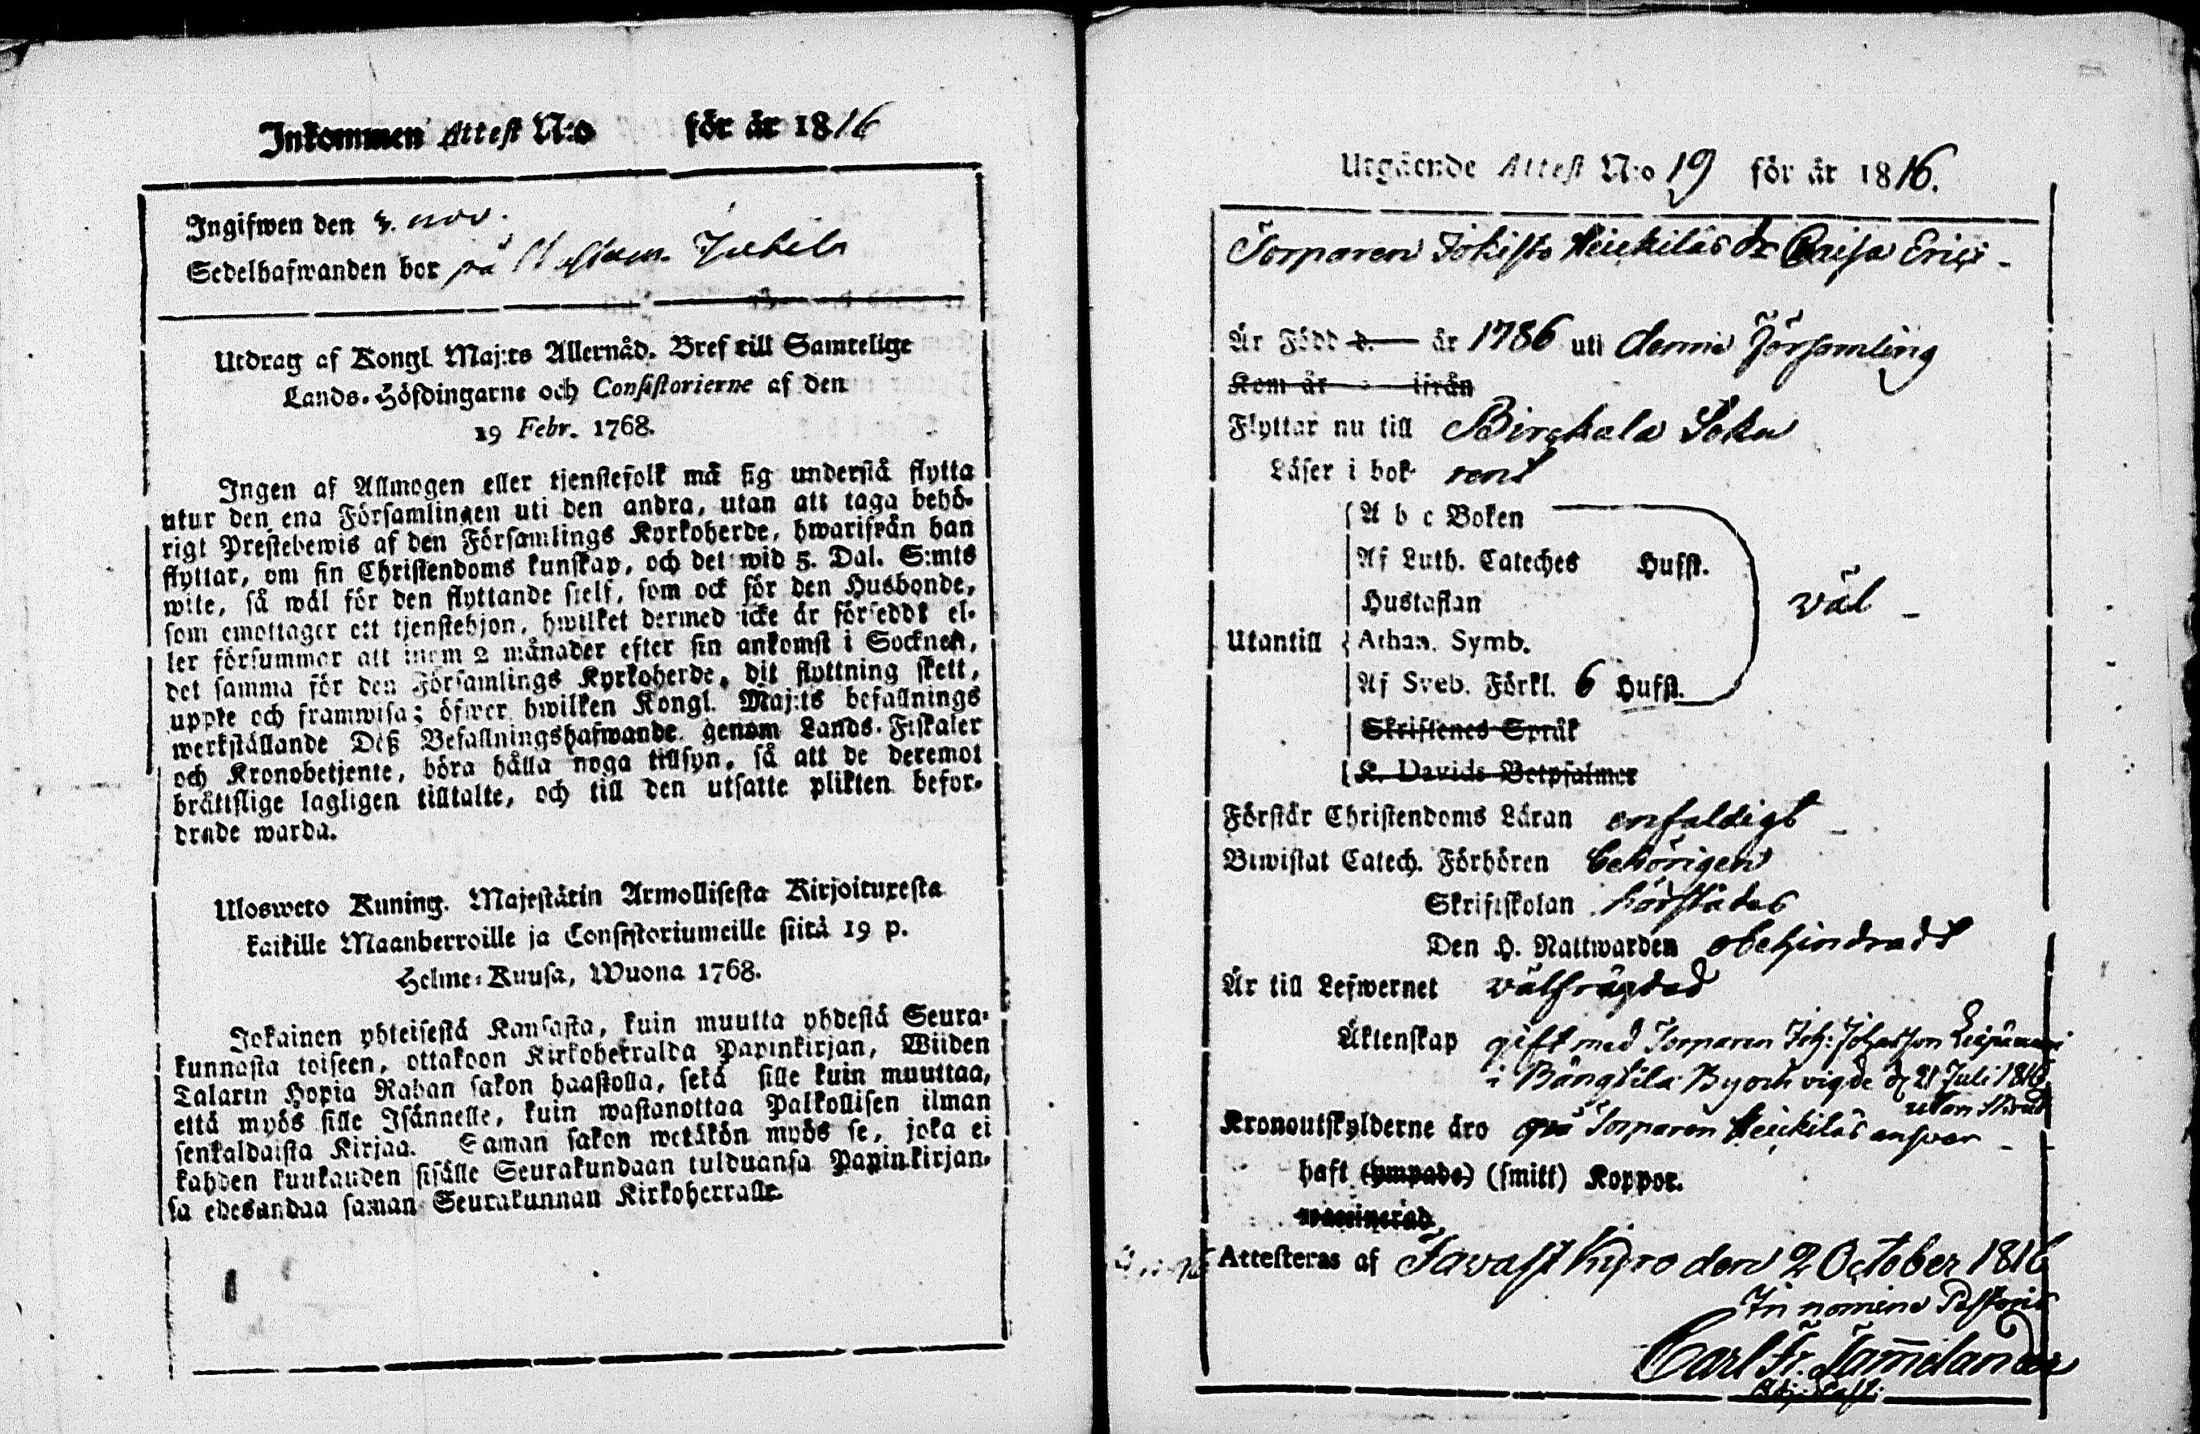 Inkommen Attest N:o för år 1816
Ingifwen den 3. nov.
Sedelhafwanden bor på
Utdrag af Kongl. Maj:ts Allernåd. Bref till Samtelige
Lands-Höfdingarne och Consistorierne af den
19 Febr. 1768.
Ingen af Allmogen eller tjenstefolk må sig understå flytta
utur den ena Församlingen uti den andra, utan att taga behö-
rigt Prestebewis af den Församlings Kyrkoherde, hwarifrån han
flyttar, om sin Christendoms kunskap, och det wid 5. Dal. S:mts
wite, så wäl för den flyttande sielf, som ock för den Husbonde,
som emottager ett tjenstehjon, hwilket dermed icke är förseddt el-
ler försummar att inom 2 månader efter sin ankomst i Socknen,
det samma för den Församlings Kyrkoherde, dit flyttning skett,
uppte och framwisa; öfwer hwilken Kongl. Maj:ts befallnings
werkställande Deß Befallningshafwande genom Lands-Fiskaler
och Kronobetjente, böra hålla noga tillsyn, så att de deremot
bråttslige lagligen tilltalte, och till den utsatte plikten befor-
drade warda.
Ulosweto Kuning. Majestätin Armollisesta Kirjoituxesta
kaikille Maanherroille ja Consistoriumeille siitä 19 p.
Helme-Kuusa, Wuona 1768.
Jokainen yhteisestä Kansasta, kuin muutta yhdestä Seura-
kunnasta toiseen, ottakoon Kirkoherralda Papinkirjan, Wiiden
Talarin Hopia Rahan sakon haastolla, sekä sille kuin muuttaa,
että myös sille Isännelle, kuin wastanottaa Palkollisen ilman
senkaldaista Kirjaa. Saman sakon wetäkön myös se, joka ei
kahden kuukauden sisälle Seurakundaan tulduansa Papinkirjan-
sa edesandaa saman Seurakunnan Kirkoherralle.
Utgående Attest N:o 19 för år 1816.
Torparen Heickiläs dr Caisa Erics
Är Född d. — år 1786 uti denna Församling
Kom år ifrån
Flyttar nu till Birckala Sokn
Läser i bok rent
A b c Boken
Af Luth. Cateches Hufst.
Hustaflan väl
Utantill Athan. Symb.
Af Sveb. Förkl. 6 Hufst.
Skriftenes Språk
K. Davids Botpsalmer
Förstår Christendoms Läran enfaldigt
Biwistat Catech. Förhören behörigen
Skriftskolan
Den H. Nattwarden obehindradt
Är till Lefwernet välfrägdad
Äktenskap gift med Torparen Joh: Johansson
i By och vigde d 21 Juli 1816
utan
Kronoutskylderne äro på Torparen Heickiläs ansvar
haft (ympade) (smitt) Koppor.
waccinerad,
Attesteras af Tavast Kyro den 2 October 1816
In nomine Pastoris
Carl Fr.
Adj: Past: